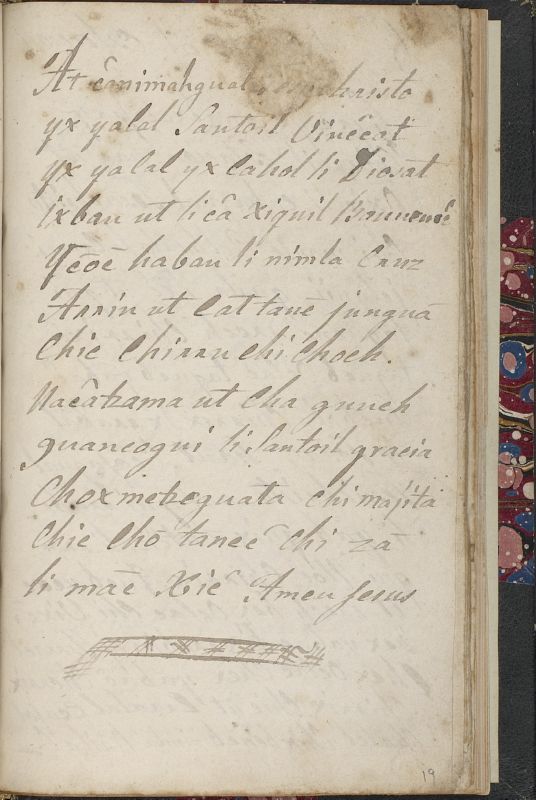 At cânimahgual christo
yx yalal Santoil Vinêcot
yx yalal yx Cahol li Diosat
ixbau ut li câ xiquil
Yêoê habau li nimla Cruz
Arrin ut Cattanê junguâ
Chic Chirru chi Choch.
Nacâtzama ut Cha guuch
guancogui li Santoil gracia
Choxmetzeguata chi majita
Chic Chô taneê chi zâ
li mâc Xbiê Amen Jesus
19